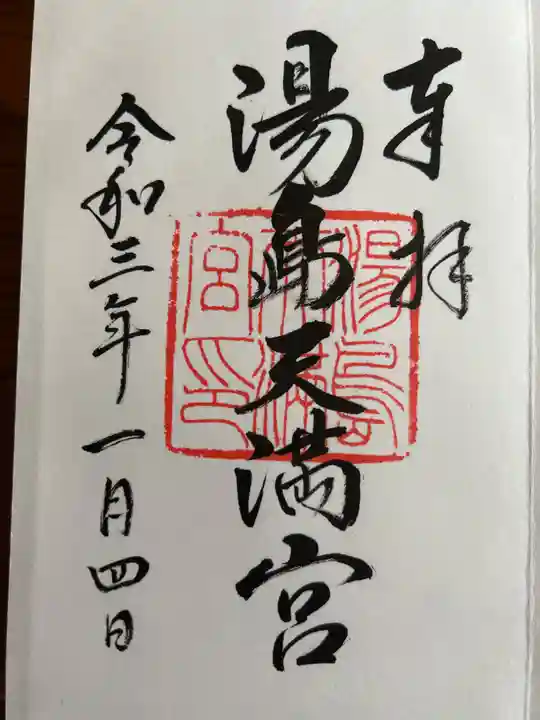 奉拝
湯島天満宮
令和三年一月四日
湯島天満宮印